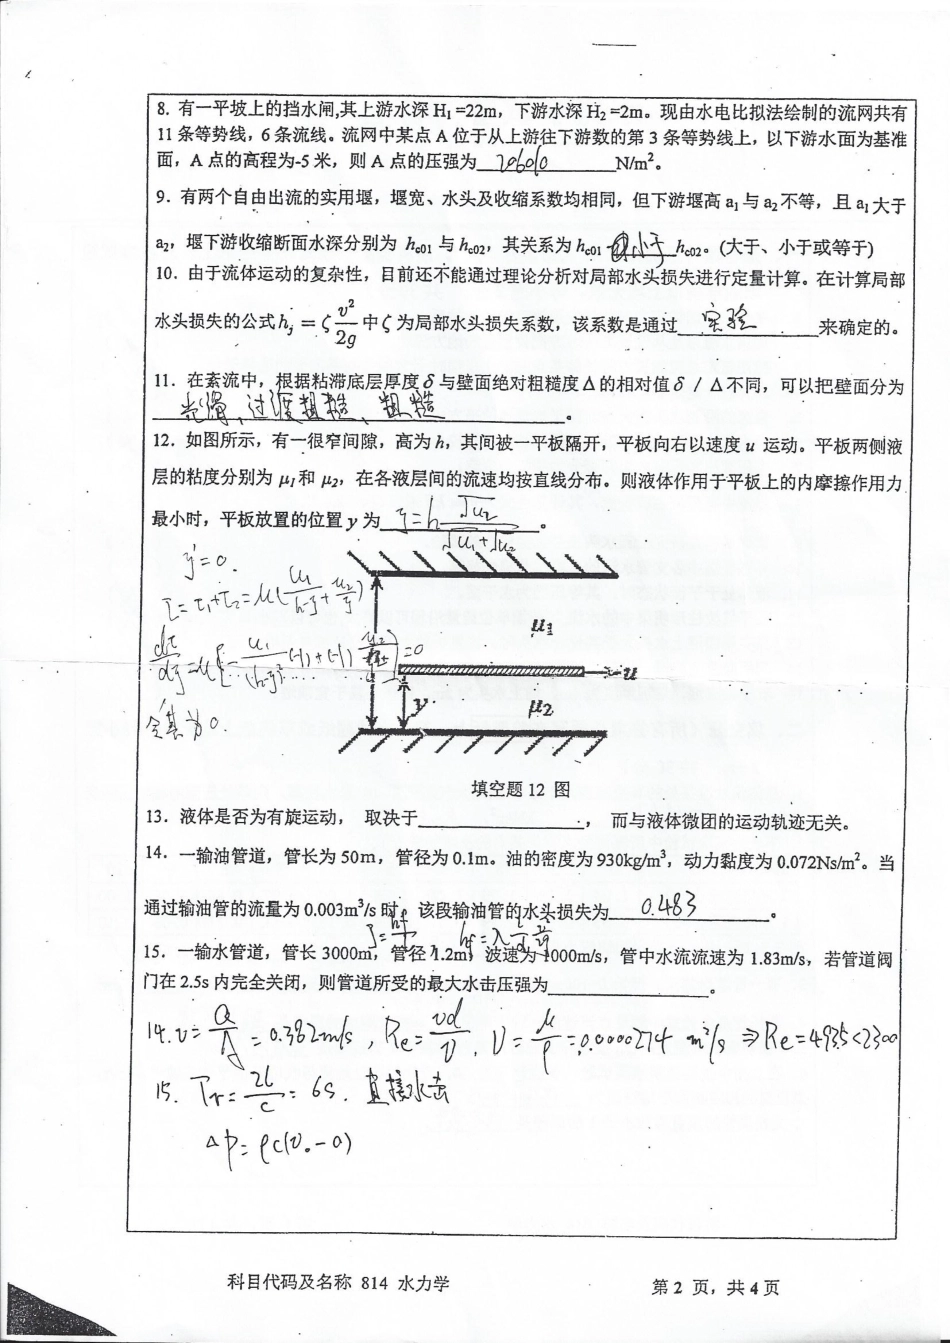 8. 有一平坡上的挡水闸,其上游水深 H₁ =22m，下游水深 H₂ =2m。现由水电比拟法绘制的流网共有
11 条等势线，6 条流线。流网中某点 A 位于从上游往下游数的第 3 条等势线上，以下游水面为基准
面，A 点的高程为-5 米，则 A 点的压强为 206010 N/m²。
9．有两个自由出流的实用堰，堰宽、水头及收缩系数均相同，但下游堰高 a₁ 与 a₂ 不等，且 a₁ 大于
a₂，堰下游收缩断面水深分别为 hc01 与 hc02，其关系为 hc01 小于 hc02。(大于、小于或等于)
10．由于流体运动的复杂性，目前还不能通过理论分析对局部水头损失进行定量计算。在计算局部
水头损失的公式 hj = ζ v²/2g 中 ζ 为局部水头损失系数，该系数是通过 实验 来确定的。
11．在紊流中，根据粘滞底层厚度 δ 与壁面绝对粗糙度 Δ 的相对值 δ / Δ 不同，可以把壁面分为
光滑、过渡粗糙、粗糙 。
12．如图所示，有一很窄间隙，高为 h，其间被一平板隔开，平板向右以速度 u 运动。平板两侧液
层的粘度分别为 μ₁ 和 μ₂，在各液层间的流速均按直线分布。则液体作用于平板上的内摩擦作用力
最小时，平板放置的位置 y 为 y=h √u₂/(√u₁+√u₂) 。
y'=0.
τ=τ₁+τ₂=μ(u₁/(h-y)+u₂/y)
μ₁
=0
u
μ₂
y
令其为0.
填空题 12 图
13．液体是否为有旋运动， 取决于 ， 而与液体微团的运动轨迹无关。
14．一输油管道，管长为 50m，管径为 0.1m。油的密度为 930kg/m³，动力黏度为 0.072Ns/m²。当
通过输油管的流量为 0.003m³/s 时，该段输油管的水头损失为 0.483 。
J=hf/l hf=λ l/d v²/2g
15．一输水管道，管长 3000m，管径 1.2m，波速为 1000m/s，管中水流流速为 1.83m/s，若管道阀
门在 2.5s 内完全关闭，则管道所受的最大水击压强为 。
14. v=Q/A=0.382m/s , Re=vd/ν , ν=μ/ρ=0.0000774 m²/s ⇒Re=493.5<2300
15. Tr=2L/c=6s. 直接水击
Δp=ρc(v₀-0)
科目代码及名称 814 水力学
第 2 页，共 4 页